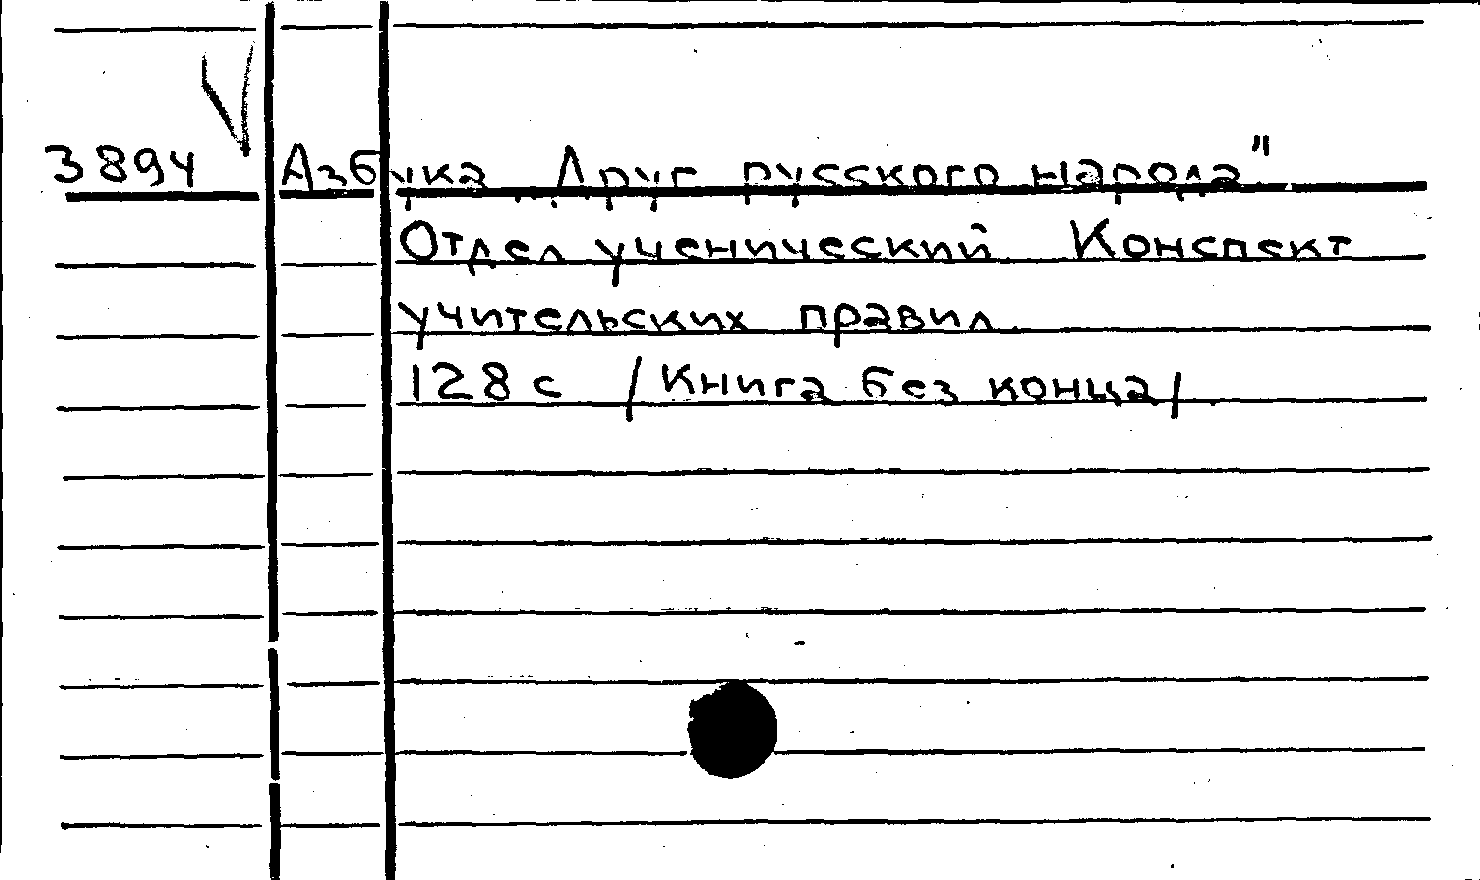 3894 Азбука „Друг русского народа"
Отдел ученический. Конспект
учительских правил.
128 с /Книга без конца/.